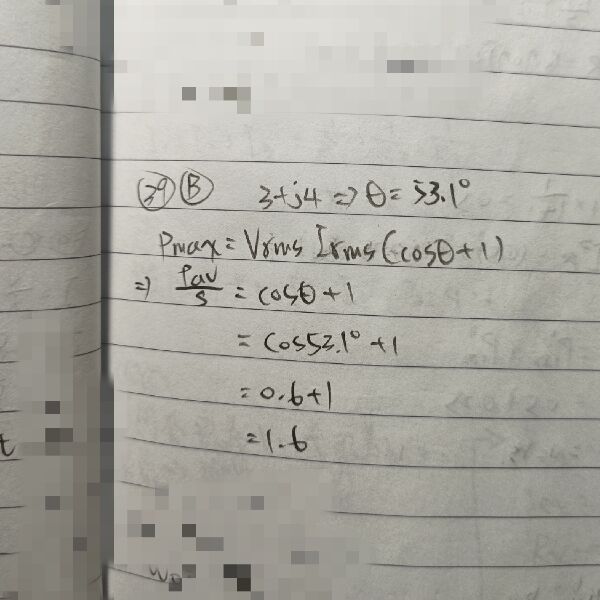 39 B 3+j4 => θ= 53.1°
Pmax = Vrms Irms (cosθ+1)
=> Pav/S = cosθ+1
= cos53.1° +1
= 0.6+1
=1.6
t